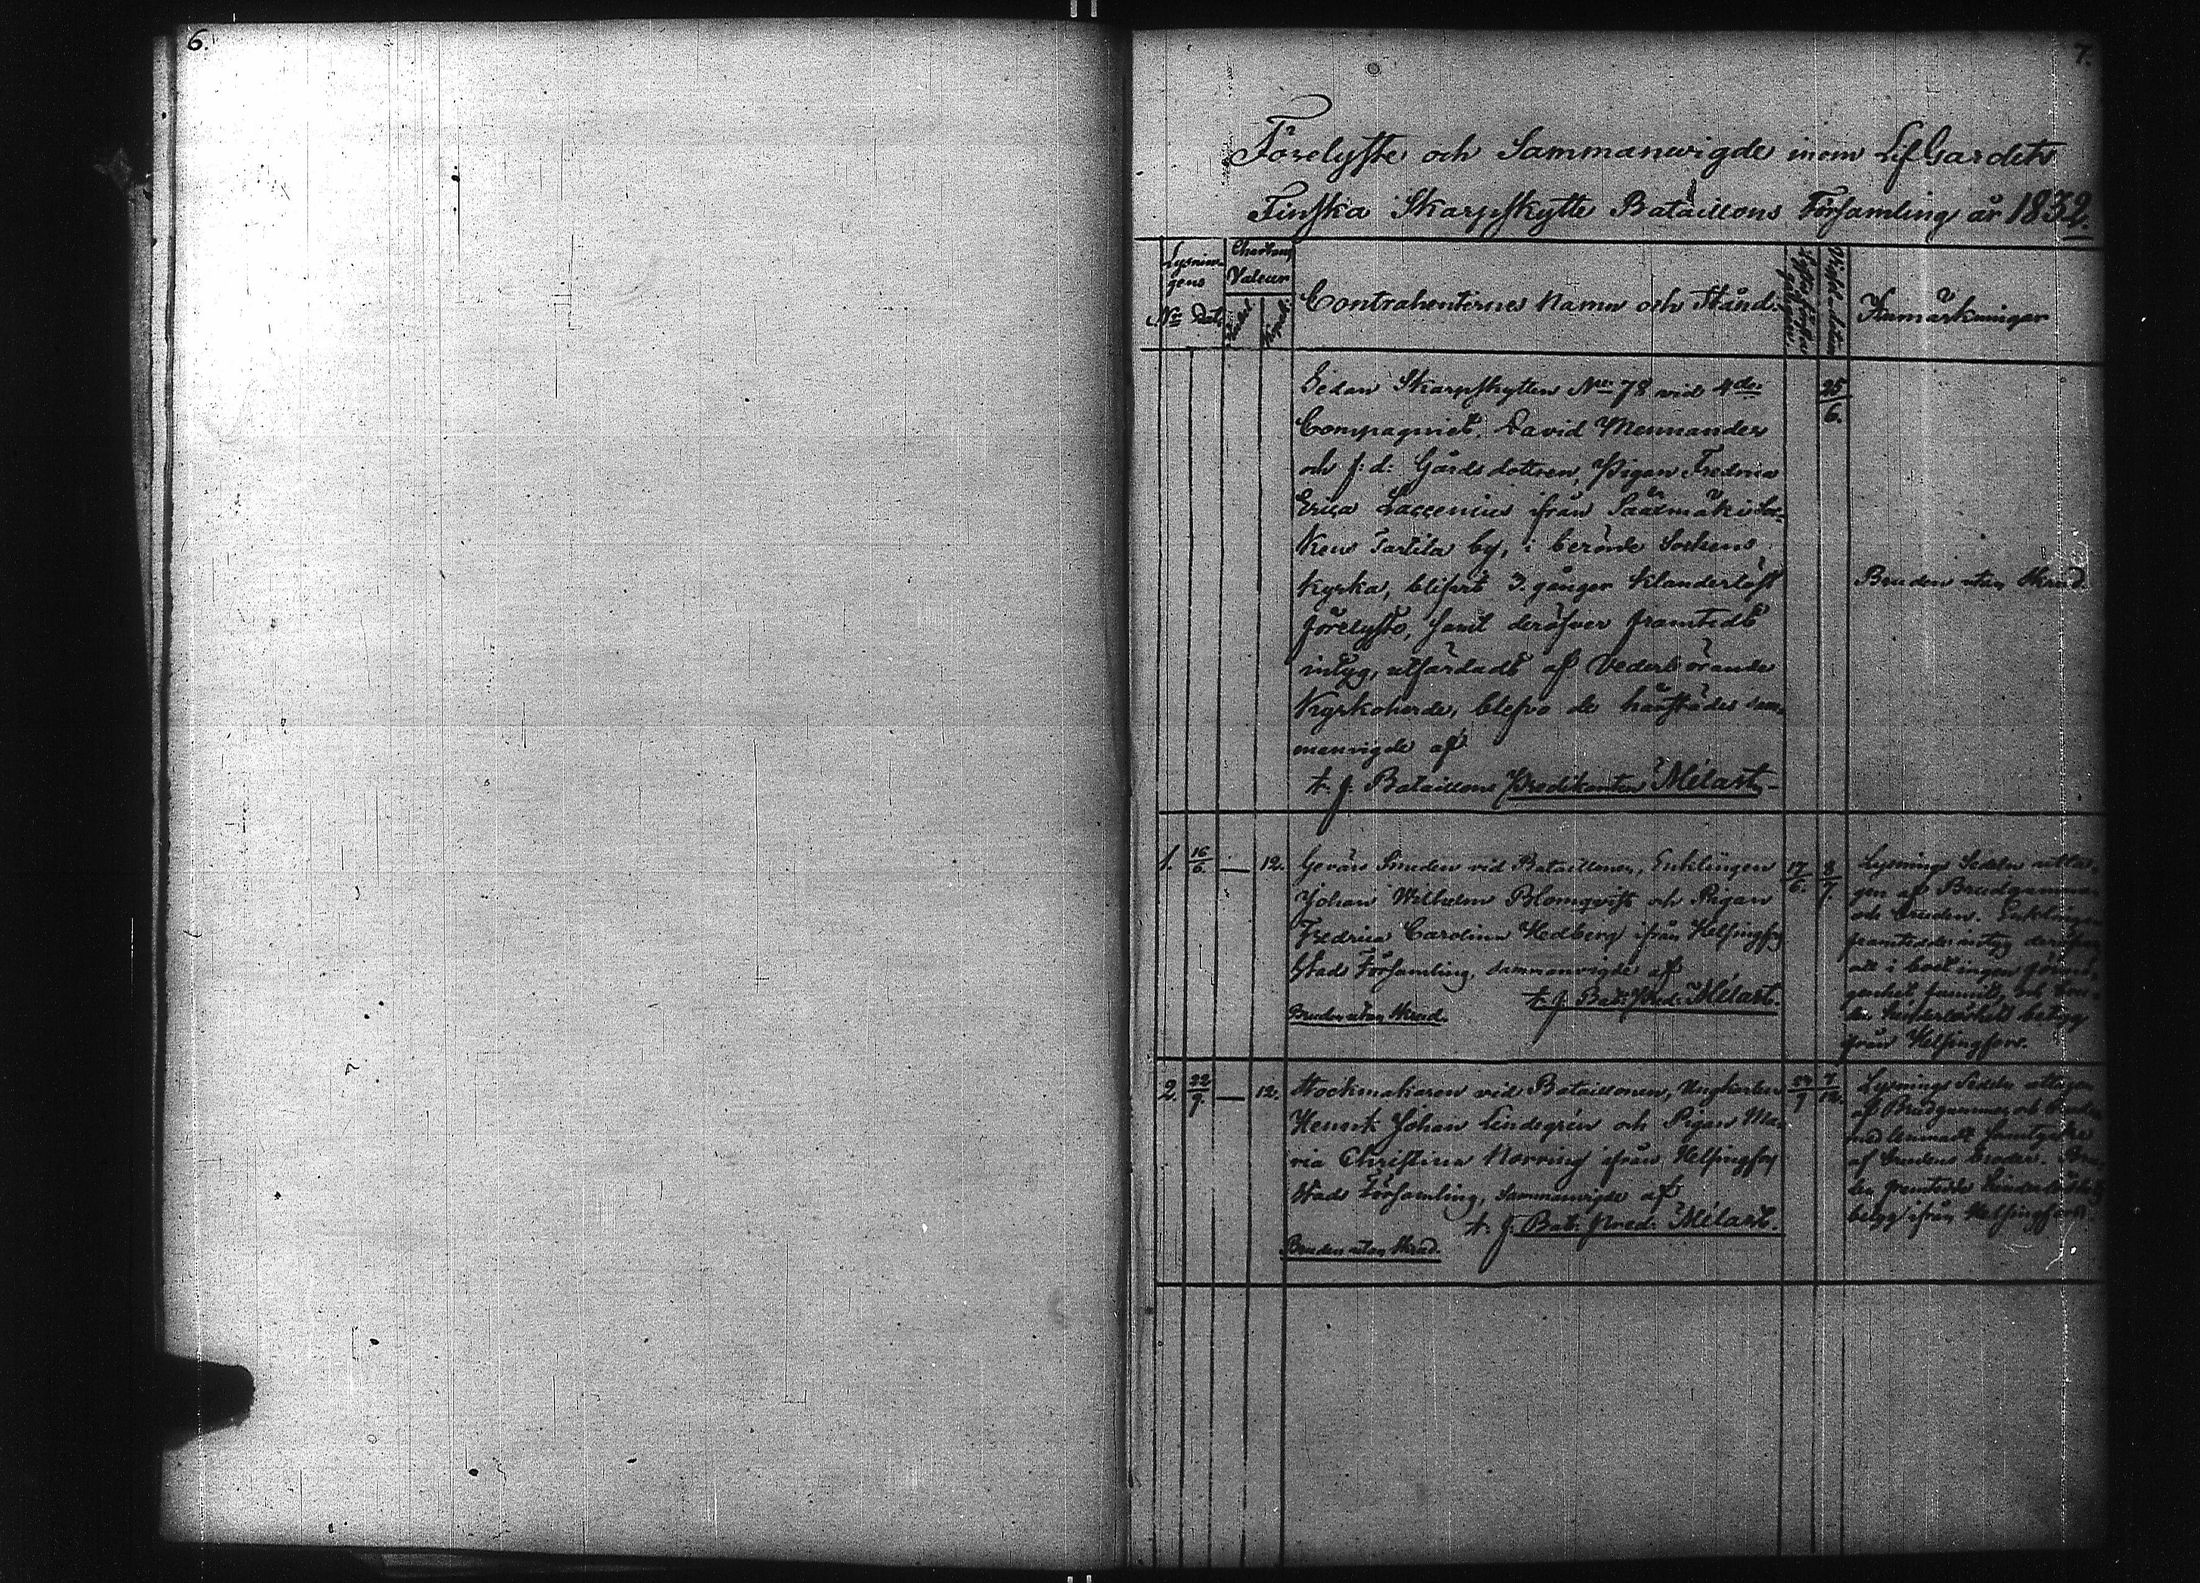 6.
7.
Förelyste och Sammanwigde inom LifGardets
Finska Skarpskytte Bataillons Församling år 1832.
Lysnin-
gens
No Dat.
Chartæ
Valeur
Contrahenternes Namn och Stånd.
Anmärkningar
Sedan Skarpskytten No 78 vid 4de
Compagniet, David Mennander
och f: d: Gårdsdottren, Pigan Fredrica
Erica Laccenius ifrån Sääxmäki Soc-
kens Tarttila by, i berörde Sockens
Kyrka, blifvit 3. gånger Klanderlöst
förelyste, samt deröfver framtedt
intyg, utfärdadt af Vederbörande
Kyrkoherde, blefvo de härstädes sam-
manvigde af
t. f. Bataillons Predikanten Mélart.
25/6.
Bruden utan Skrud.
1. 16/6 — 12.
Gevärs Smeden vid Bataillonen, Enklingen
Johan Wilhelm Blomqvist och Pigan
Fredrica Carolina Hedberg ifrån Helsingfors
Stads Församling, sammanvigde af
t. f. Bat: Pred: Mélart.
Bruden utan Skrud.
17/6. 8/7.
Lysnings Sedeln untta-
gen af Brudgummen
och Bruden. Enklingen
framtedde intyg deröfver
att i boet ingen
från Helsingfors.
2. 22/9. — 12.
Stockmakaren vid Bataillonen, Ungkarlen
Henrik Johan Lindegrén och Pigan Ma-
ria Christina Norring ifrån Helsingfors
Stads Församling, sammanvigde af
t. f. Bat: Pred: Mélart.
Bruden utan Skrud.
7/12.
Lysnings Sedeln uttagen
af Brudgummen och Bruden
med lemnadt samtycke
af Brudens Broder. Bru-
den framtedde hinderslöshets
betyg ifrån Helsingfors.